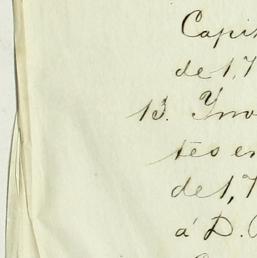 Capi
de 1,7
13. Ynv
tes en
de 1,7
á D.